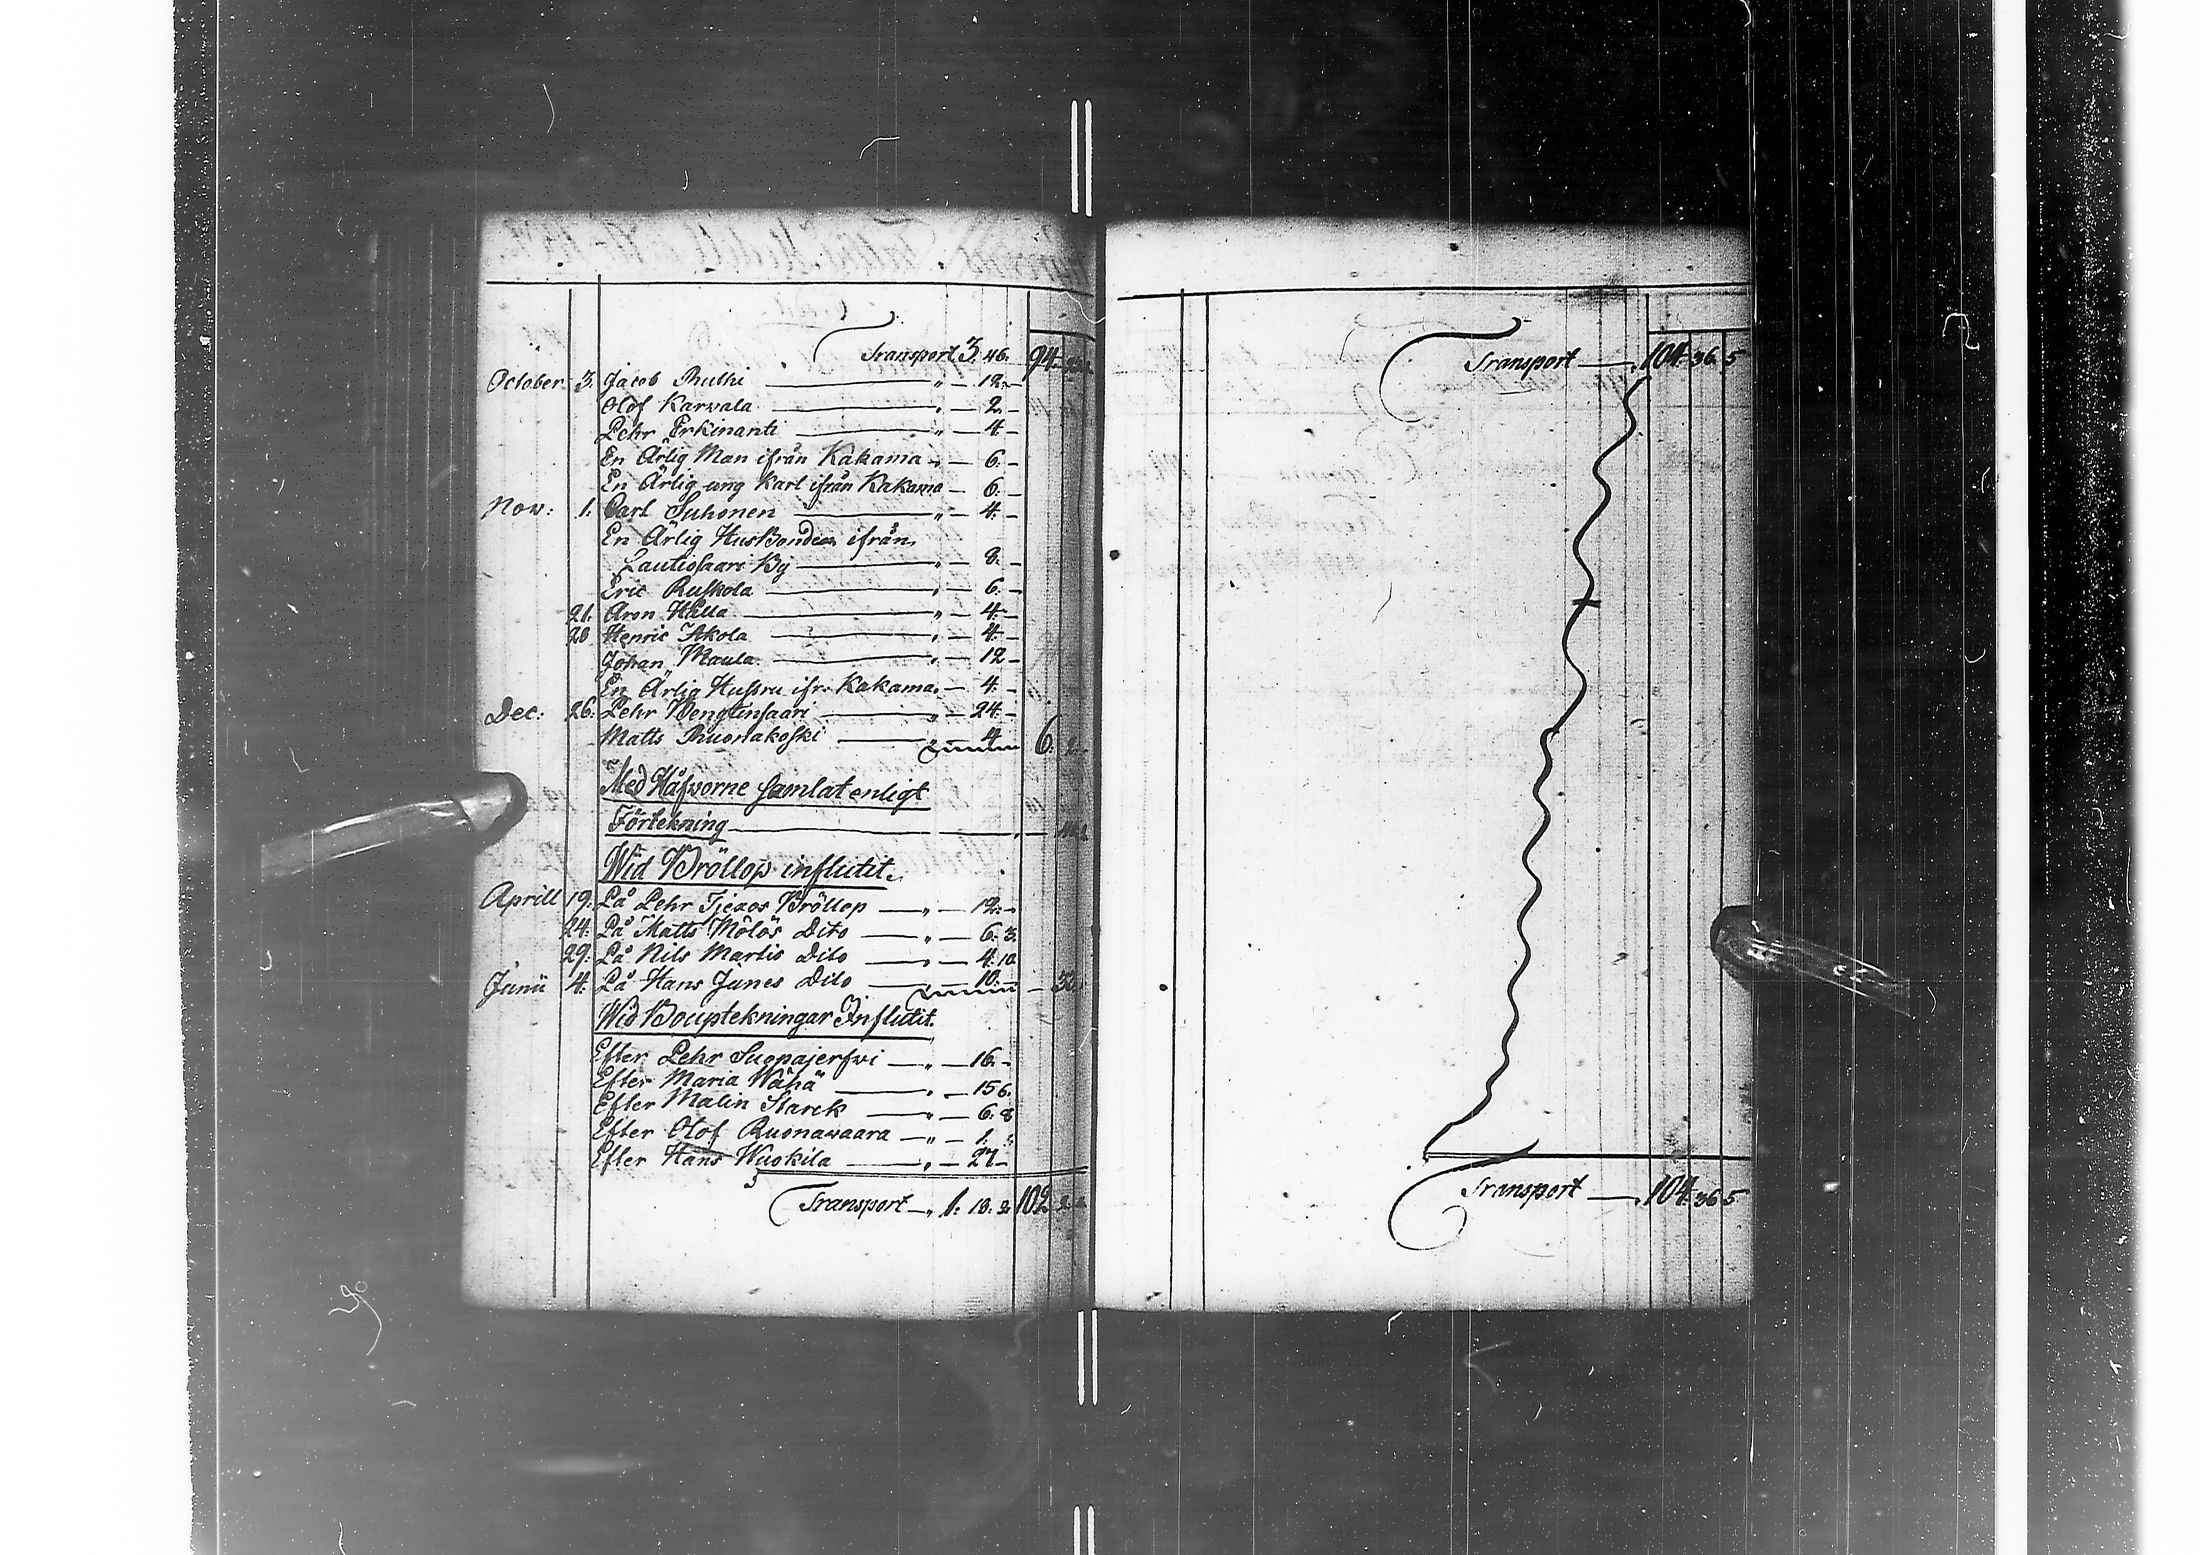 Transport 3. 46. 94.
October 3. Jacob Ruthi " — 12. —
Olof Karvala " — 2. —
Pehr Erkinanti " — 4. —
En Ärlig Man ifrån Kakama " — 6. —
En Ärlig ung Karl ifrån Kakama — 6. —
Nov: 1. Carl Suhonen " — 4. —
En Ärlig HusBonde ifrån
Lautiosaari By " — 8. —
Eric Ruskola " — 6. —
21. Aron Halla " — 4. —
28 Henric Akola " — 4. —
Johan Maula " — 12 —
En Ärlig Hustru ifr: Kakama. — 4. —
Dec: 26. Pehr Wengtinsaari " — 24. —
Matts Ruonakoski 4 6.
Med Håfvorne samlat enligt
Förtekning
Wid Bröllop influtit.
Aprill 19. På Pehr Tjeaos Bröllop — " — 12. —
24. På Matts Mölös Dito — " — 6. 3.
29. På Nils Martis Dito — " — 4. 10
Junii 4. På Hans Junes Dito — 10.
Wid Bouptekningar Influtit.
Efter Pehr Suopajerfwi — " — 16. —
Efter Maria Wähä " — 15 6.
Efter Malin Starck — " — 6. 8
Efter Olof Ruonawaara — " — 1.
Efter Hans Wuokila — " — 27 —
Transport — " 1. 18. 2 102
Transport — " 104. 36. 5
Transport — " 104. 36 5